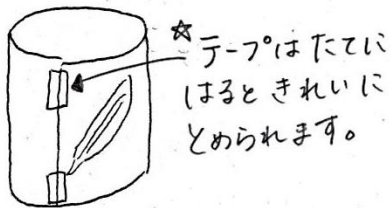 ☆テープはたてに
はるときれいに
とめられます。